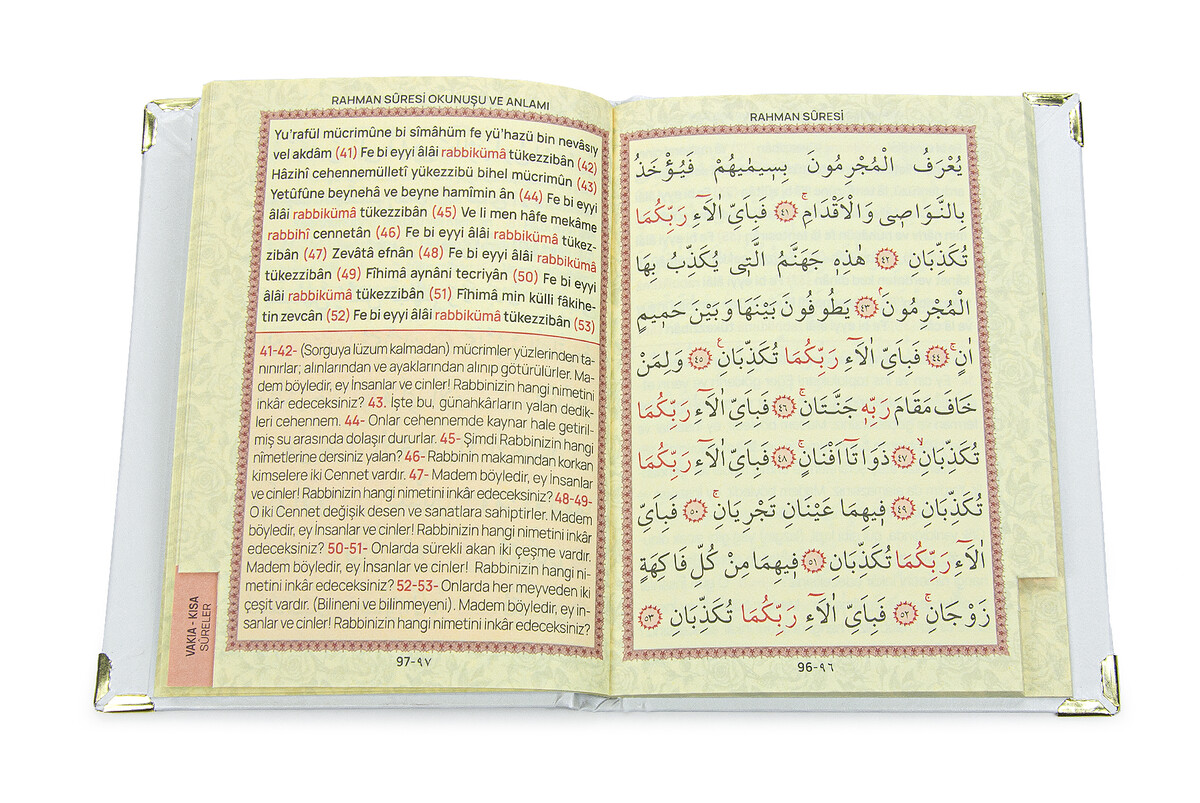 RAHMAN SÛRESİ OKUNUŞU VE ANLAMI
Yu'rafül mücrimûne bi sîmâhüm fe yü'hazü bin nevâsıy
vel akdâm (41) Fe bi eyyi âlâi rabbikümâ tükezzibân (42)
Hâzihî cehennemülletî yükezzibü bihel mücrimûn (43)
Yetûfûne beynehâ ve beyne hamîmin ân (44) Fe bi eyyi
âlâi rabbikümâ tükezzibân (45) Ve li men hâfe mekâme
rabbihî cennetân (46) Fe bi eyyi âlâi rabbikümâ tükez-
zibân (47) Zevâtâ efnân (48) Fe bi eyyi âlâi rabbikümâ
tükezzibân (49) Fîhimâ aynâni tecriyân (50) Fe bi eyyi
âlâi rabbikümâ tükezzibân (51) Fîhimâ min külli fâkihe-
tin zevcân (52) Fe bi eyyi âlâi rabbikümâ tükezzibân (53)
41-42- (Sorguya lüzum kalmadan) mücrimler yüzlerinden ta-
nınırlar; alınlarından ve ayaklarından alınıp götürülürler. Ma-
dem böyledir, ey İnsanlar ve cinler! Rabbinizin hangi nimetini
inkâr edeceksiniz? 43. İşte bu, günahkârların yalan dedik-
leri cehennem. 44- Onlar cehennemde kaynar hale getiril-
miş su arasında dolaşır dururlar. 45- Şimdi Rabbinizin hangi
nîmetlerine dersiniz yalan? 46- Rabbinin makamından korkan
kimselere iki Cennet vardır. 47- Madem böyledir, ey İnsanlar
ve cinler! Rabbinizin hangi nimetini inkâr edeceksiniz? 48-49-
O iki Cennet değişik desen ve sanatlara sahiptirler. Madem
böyledir, ey İnsanlar ve cinler! Rabbinizin hangi nimetini inkâr
edeceksiniz? 50-51- Onlarda sürekli akan iki çeşme vardır.
Madem böyledir, ey İnsanlar ve cinler! Rabbinizin hangi ni-
metini inkâr edeceksiniz? 52-53- Onlarda her meyveden iki
çeşit vardır. (Bilineni ve bilinmeyeni). Madem böyledir, ey in-
sanlar ve cinler! Rabbinizin hangi nimetini inkâr edeceksiniz?
97-٩٧
VAKIA - KISA
SÛRELER
RAHMAN SÛRESİ
يُعْرَفُ الْمُجْرِمُونَ بِسِيمٰيهُمْ فَيُؤْخَذُ
بِالنَّوَاصِى وَالْاَقْدَامِۚ ﴿٤١﴾ فَبِاَىِّ اٰلَٓاءِ رَبِّكُمَا
تُكَذِّبَانِ ﴿٤٢﴾ هٰذِهِ جَهَنَّمُ الَّتِى يُكَذِّبُ بِهَا
الْمُجْرِمُونَۢ ﴿٤٣﴾ يَطُوفُونَ بَيْنَهَا وَبَيْنَ حَمِيمٍ
اٰنٍۚ ﴿٤٤﴾ فَبِاَىِّ اٰلَٓاءِ رَبِّكُمَا تُكَذِّبَانِۚ ﴿٤٥﴾ وَلِمَنْ
خَافَ مَقَامَ رَبِّهِ جَنَّتَانِۚ ﴿٤٦﴾ فَبِاَىِّ اٰلَٓاءِ رَبِّكُمَا
تُكَذِّبَانِۙ ﴿٤٧﴾ ذَوَاتَٓا اَفْنَانٍۚ ﴿٤٨﴾ فَبِاَىِّ اٰلَٓاءِ رَبِّكُمَا
تُكَذِّبَانِ ﴿٤٩﴾ فِيهِمَا عَيْنَانِ تَجْرِيَانِۚ ﴿٥٠﴾ فَبِاَىِّ
اٰلَٓاءِ رَبِّكُمَا تُكَذِّبَانِ ﴿٥١﴾ فِيهِمَا مِنْ كُلِّ فَاكِهَةٍ
زَوْجَانِۚ ﴿٥٢﴾ فَبِاَىِّ اٰلَٓاءِ رَبِّكُمَا تُكَذِّبَانِ ﴿٥٣﴾
96-٩٦